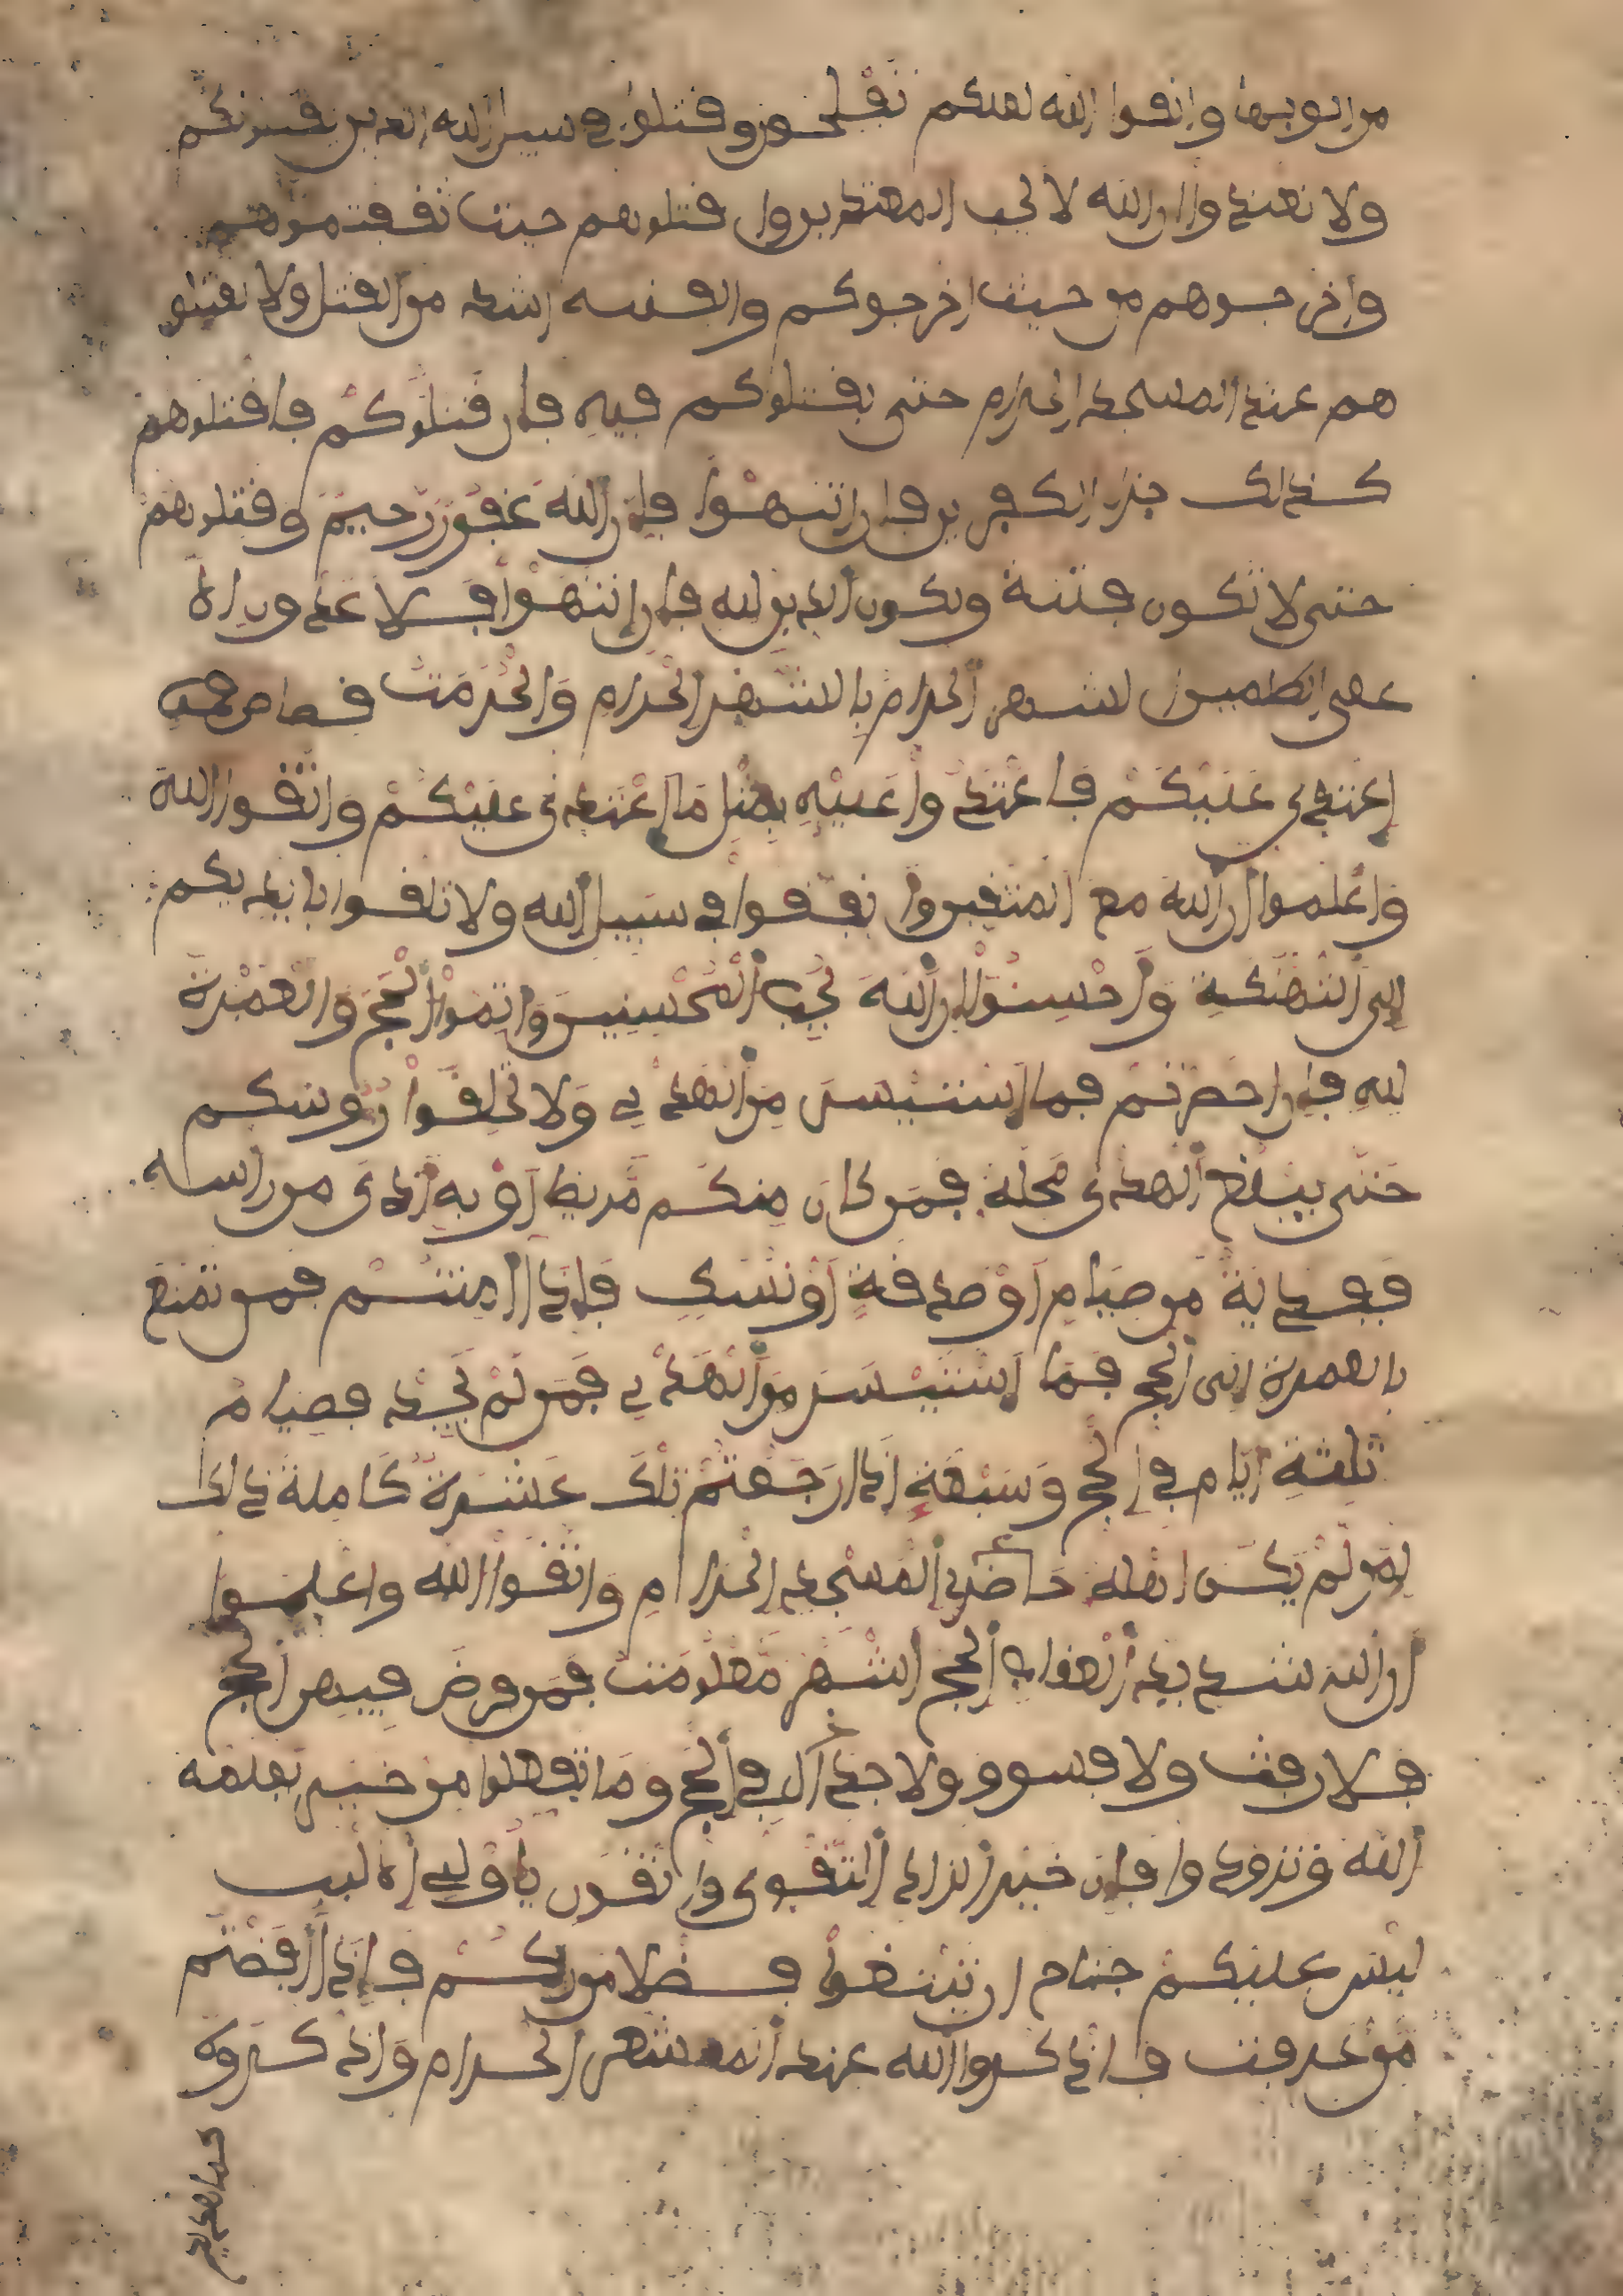 من ابوبها واتقوا الله لعلكم تفلحون وقتلوا في سبيل الله الذين يقتلونكم
ولا تعتدوا ان الله لا يحب المعتدين واقتلوهم حيث ثقفتموهم
واخرجوهم من حيث اخرجوكم والفتنه اشد من القتل ولا تقتلو
هم عند المسجد الحرام حتى يقتلوكم فيه فان قتلوكم فاقتلوهم
كذلك جزاء الكفرين فان انتهوا فإن الله غفور رحيم وقتلوهم
حتى لا تكون فتنة ويكون الدين لله فان انتهوا فلا عدون الا
على الظلمين الشهر الحرام بالشهر الحرام والحرمت قصاص فمن
اعتدى عليكم فاعتدوا عليه بمثل ما اعتدى عليكم واتقوا الله
واعلموا ان الله مع المتقين وانفقوا في سبيل الله ولا تلقوا بايديكم
الى التهلكة وأحسنوا إن الله يحب المحسنين وأتموا الحج والعمرة
لله فإن احصرتم فما استيسر من الهدي ولا تحلقوا روسكم
حتى يبلغ الهدى محله فمن كان منكم مريضا أو به أذى من راسه
ففدية من صيام أو صدقة أو نسك فإذا امنتم فمن تمتع
بالعمرة الى الحج فما استيسر من الهدي فمن لم يجد فصيام
ثلثة ايام في الحج وسبعة اذا رجعتم تلك عشرة كاملة ذلك
لمن لم يكن اهله حاضري المسجد الحرام واتقوا الله واعلموا
ان الله شديد العقاب الحج اشهر معلومت فمن فرض فيهن الحج
فلا رفث ولا فسوق ولا جدال في الحج وما تفعلوا من خير يعلمه
الله وتزودوا فإن خير الزاد التقوى واتقون يأولي الالبب
ليس عليكم جناح ان تبتغوا فضلا من ربكم فإذا أفضتم
من عرفت فاذكروا الله عند المشعر الحرام واذكروه
كما هديكم